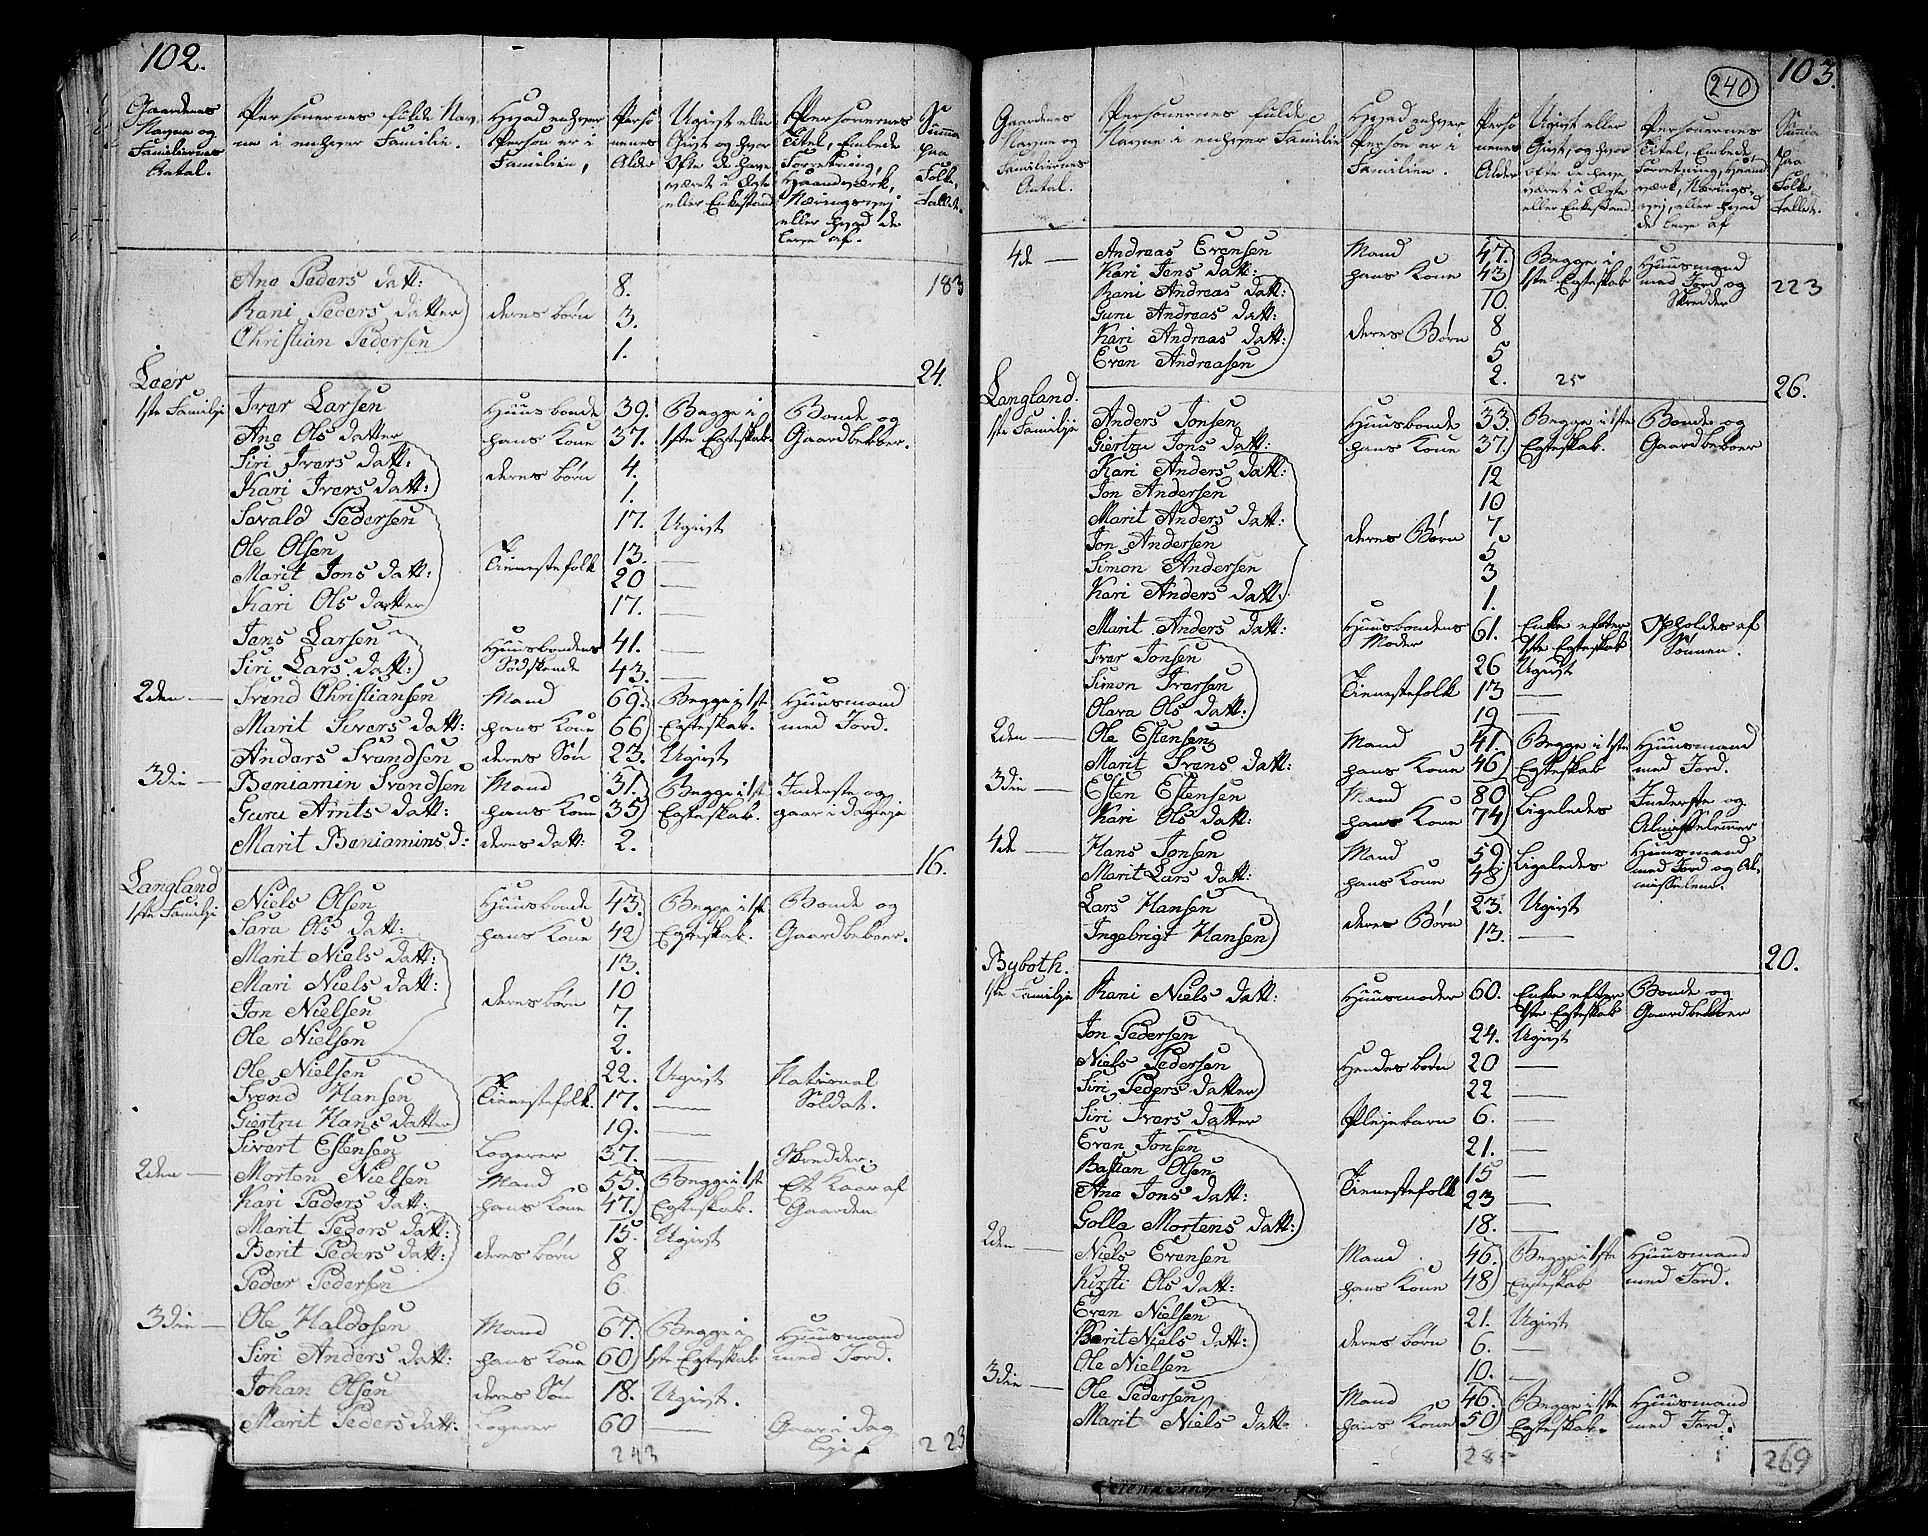 102.
Gaardenes Navne og Familiernes Antal.
Personernes fulde Navne i enhver Familie.
Hvad enhver Person er i Familien,
Personernes Alder
Ugivt eller Givt og hvor Ofte de have været i Ægte eller Enkestand
Personernes Titel, Embede Forretning, Haandværk, Næringsvej eller hvad de leve af.
Summa paa Folke Tallet.
183
Ane Peders datt: 8.
Rani Peders datter deres børn 3.
Christian Pedersen 1.
24.
Leer
1ste Familje Iver Larsen Huusbonde 39. Begge i Bonde og
Ane Ols datter hans Kone 37. 1ste Egteskab. Gaardbeboer.
Siri Ivers datt: deres børn 4.
Kari Ivers datt: 1.
Sevald Pedersen 17. Ugivt
Ole Olsen Tienestefolk 13. —
Marit Jons datt: 20 —
Kari Ols datter 17. —
Jens Larsen Huusbondens 41. —
Siri Lars datt: Södskende 43. —
2den — Svend Christiansen Mand 69. Begge i 1ste Huusmand
Marit Sivers datt: hans Kone 66) Egteskab. med Jord.
Anders Svendsen deres Søn 23. Ugivt
3die — Beniamin Svendsen Mand 31. Begge i 1ste Inderste og
Guru Arnts datt: hans Kone 35) Egteskab. gaar i dagleje
Marit Beniamins d: deres datt: 2.
16.
Langland
1ste Familje Niels Olsen Huusbonde 43. Begge i 1ste Bonde og
Sara Ols datt: hans Kone 42) Egteskab. Gaardbeboer.
Marit Niels datt: 13.
Mari Niels datt: deres børn 10
Jon Nielsen 7.
Ole Nielsen 2.
Ole Nielsen 22. Ugivt National Soldat.
Svend Hansen Tienestefolk. 17. —
Giertru Hans datter 19. —
Sivert Estensen Logerer 37. — Skredder.
2den — Morten Nielsen Mand 55. Begge i 1ste Et Kaar af
Kari Peders datt: hans Kone 47.) Egteskab. Gaarden
Marit Peders datt: 15. Ugivt
Berit Peders datt: deres børn 8
Peder Pedersen 6
3die — Ole Haldosen Mand 67. Begge i Huusmand
Siri Anders datt: hans Kone 60) 1ste Egteskab med Jord.
Johan Olsen deres Søn 18. Ugivt.
Marit Peders datt: Logerer 60 — Gaar i dag leje
243 223
240
103.
Gaardenes Navne og Familiernes Antal.
Personernes fulde Navne i enhver Familie
Hvad enhver Person er i Familien.
Personernes Alder
Ugivt eller Givt, og hvor ofte de have været i Ægte eller Enkestand
Personernes Titel, Embede, Forretning, Haandværk, Næringsvej, eller hvad de leve af
Summa paa Folke Tallet.
4de — Andreas Evensen Mand 47. Begge i Huusmand
Kari Jens datt: hans Kone 43) 1ste Egteskab med Jord og Skredder 223
Rani Andreas datt: 10.
Guru Andreas datt: 8
Kari Andreas datt: deres Børn 5
Even Andreasen 2.
25
26.
Langland.
1ste Familje Anders Jonsen Huusbonde 33. Begge i 1ste Bonde og
Giertru Jons datt: hans Kone 37.) Egteskab. Gaardbeboer
Kari Anders datt: 12
Jon Andersen 10
Marit Anders datt: 7
Jon Andersen deres Børn 5
Simon Andersen 3
Kari Anders datt: 1.
Marit Anders datt: Huusbondens Moder 61. Enke efter 1ste Egteskab Opholdes af Sønnen.
Iver Jonsen 26 Ugivt
Simon Iversen Tienestefolk 13 —
Olava Ols datt: 19 —
2den — Ole Estensen Mand 41. Begge i 1ste Huusmand
Marit Svens datt: hans Kone 46) Egteskab med Jord.
3die — Esten Estensen Mand 80 Ligeledes Inderste og
Kari Ols datt: hans Kone 74) Almisselemmer
4de — Hans Jonsen Mand 59 Ligeledes Huusmand
Marit Lars datt: hans Kone 48) med Jord og Almisselem.
Lars Hansen deres Børn 23. Ugivt
Ingebrigt Hansen 13. —
20.
Byboth.
1ste Familje Rani Niels datt: Huusmoder 60. Enke efter 1ste Egteskab Bonde og Gaardbeboer
Jon Pedersen 24. Ugivt
Niels Pedersen Hendes børn 20 —
Siri Peders datter 22 —
Siri Ivers datter Plejebarn 6. —
Even Jonsen 21. —
Bastian Olsen Tienestefolk 15 —
Ane Jons datt: 23 —
Golla Mortens datt: 18. —
2den — Niels Evensen Mand 46. Begge i 1ste Huusmand
Kirsti Ols datt: hans Kone 48) Egteskab med Jord.
Even Nielsen 21. Ugivt
Berit Niels datt: deres børn 6. —
Ole Nielsen 10. —
3die — Ole Pedersen Mand 46. Begge i 1ste Huusmand
Marit Niels datt: hans Kone 50) Egteskab. med Jord.
285 269